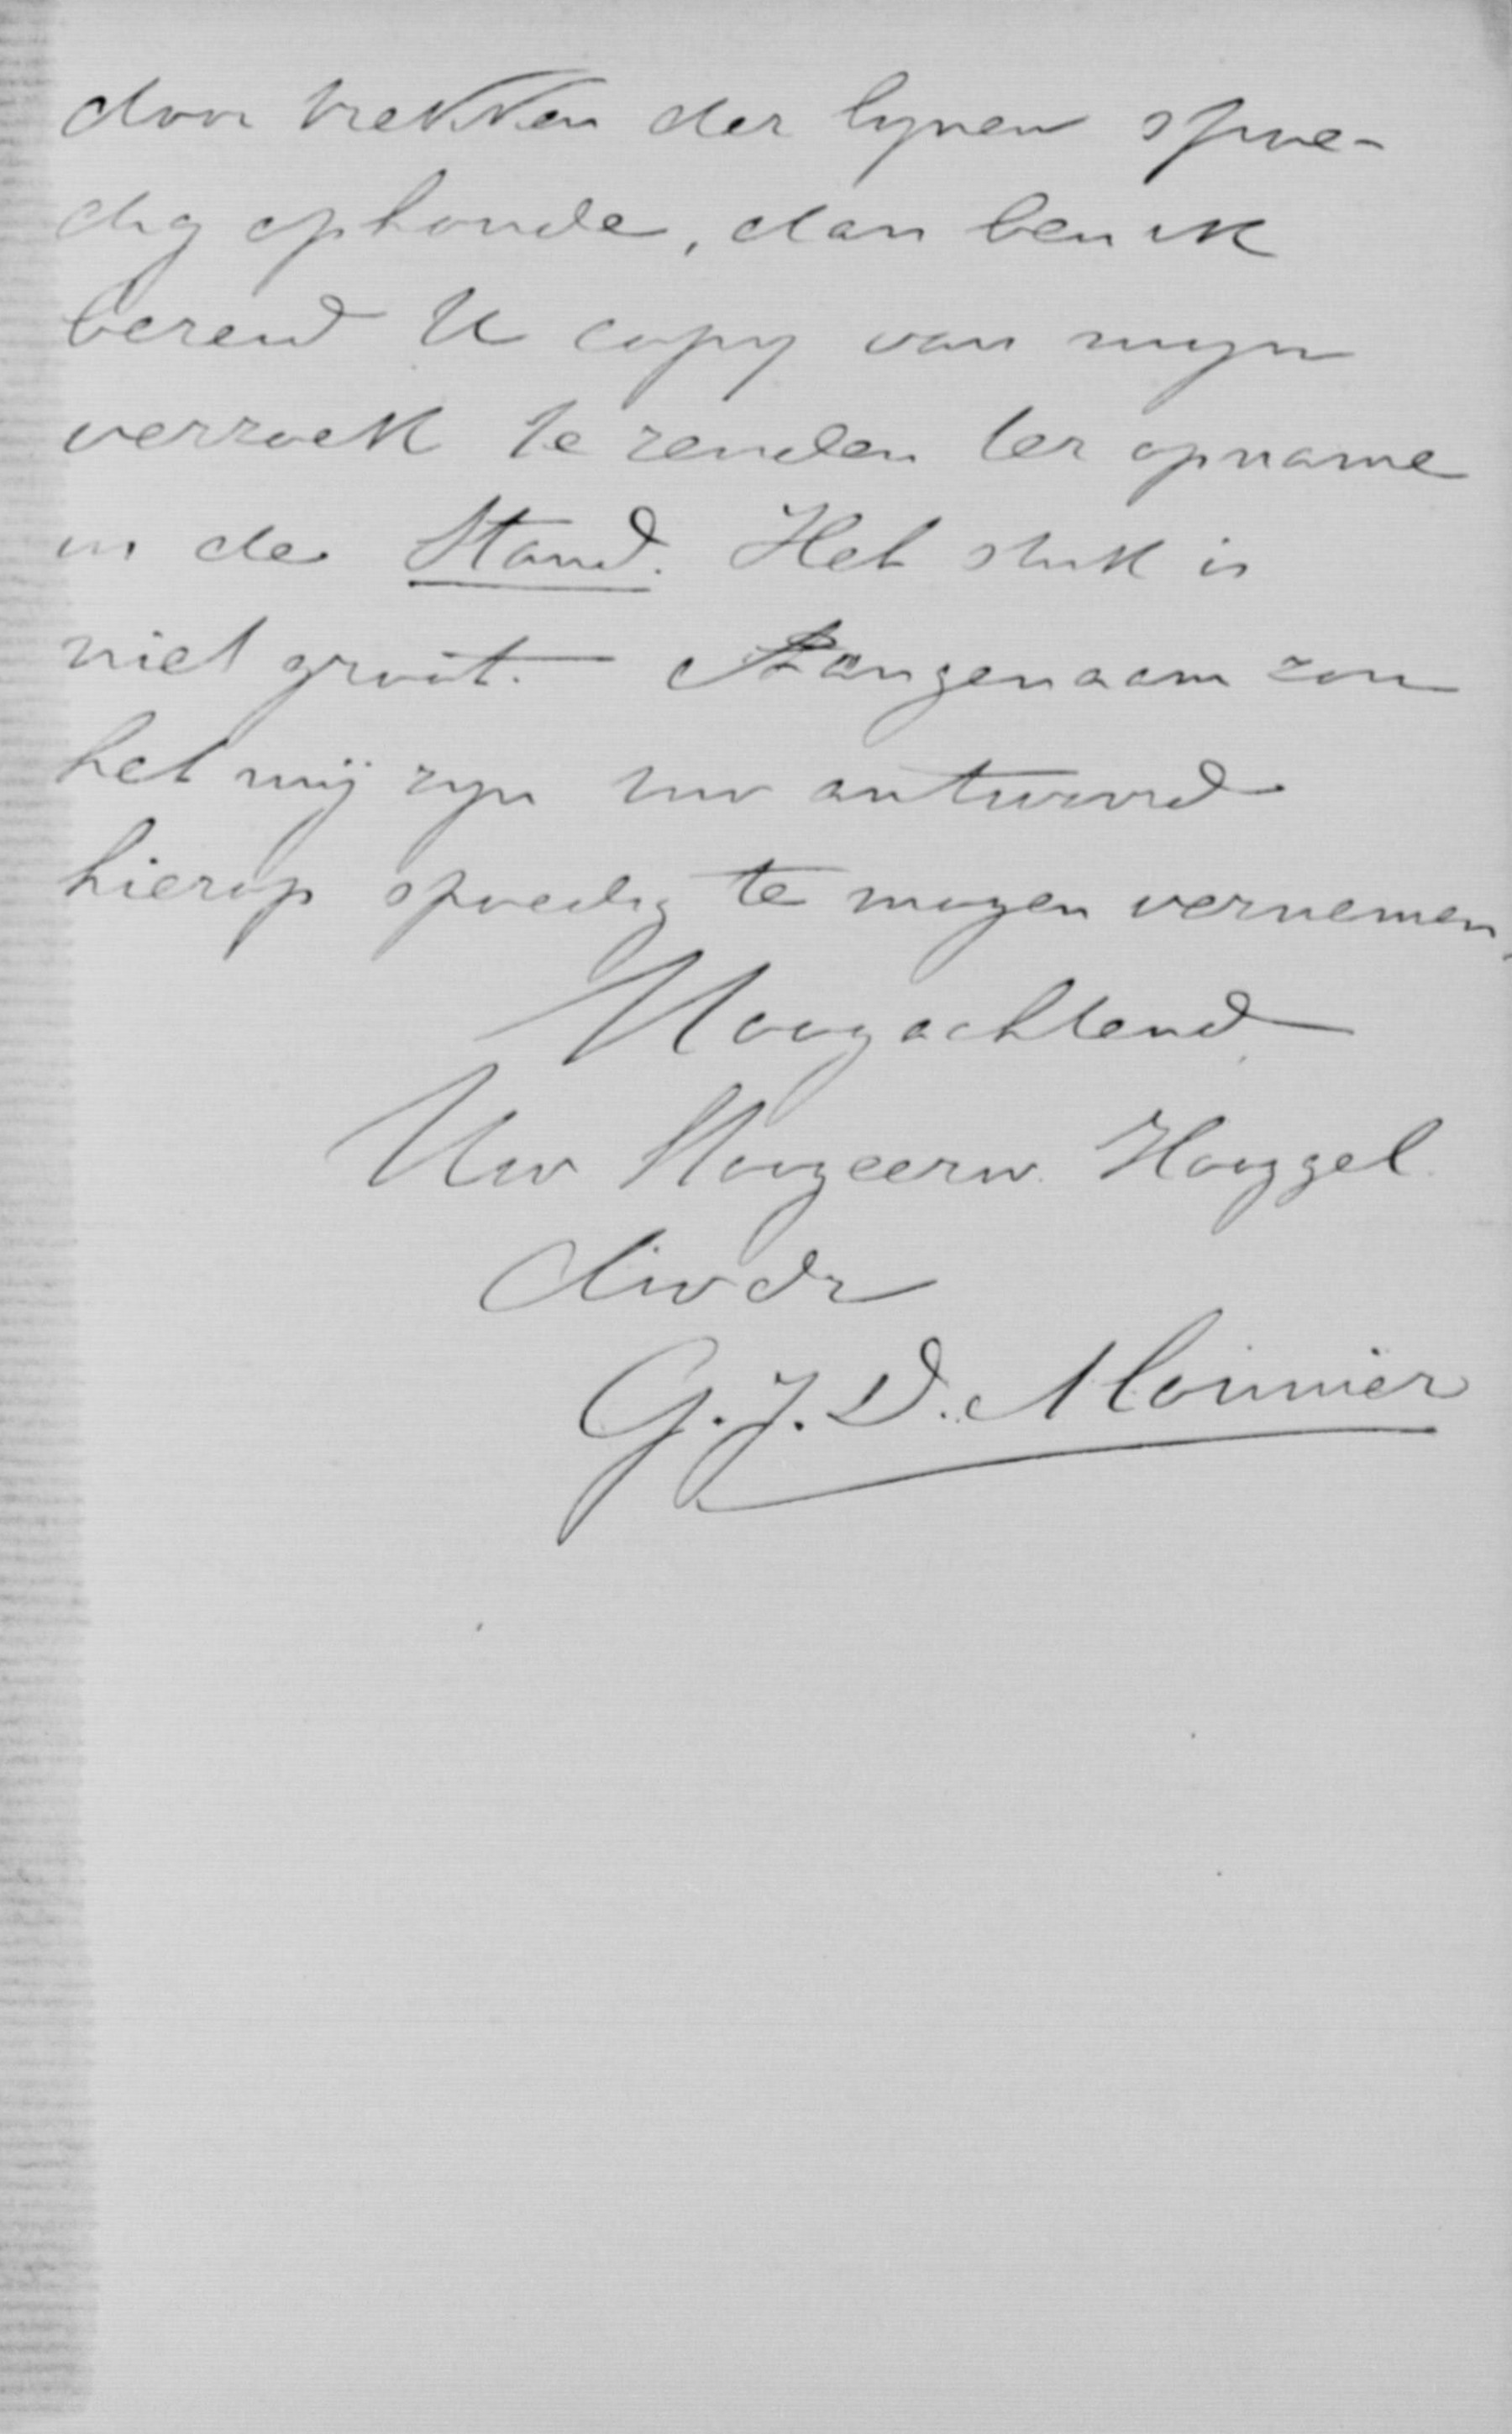 door trekken der lynen spoe-
dig ophoude, dan ben ik
bereid U copy van myn
verzoek te zenden ter opname
in de Stand. Het stuk is
niet groot. Aangenaam zou
het mij zyn uw antwoord
hierop spoedig te mogen vernemen,
Hoogachtend
Uw Hoogeerw. Hooggel.
diwdr
G. J. D. Monnier